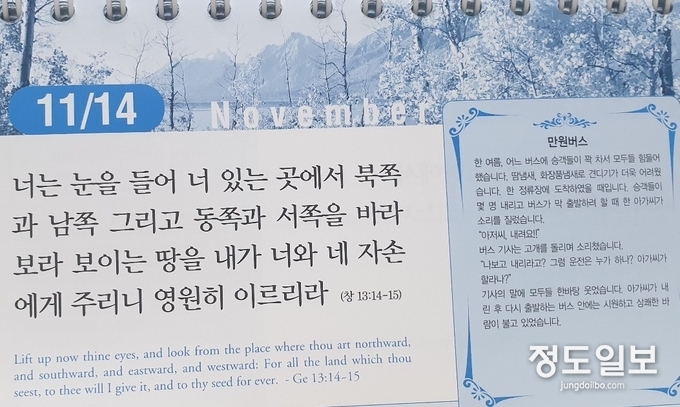 11/14
November
너는 눈을 들어 너 있는 곳에서 북쪽
과 남쪽 그리고 동쪽과 서쪽을 바라
보라 보이는 땅을 내가 너와 네 자손
에게 주리니 영원히 이르리라 (창 13:14-15)
Lift up now thine eyes, and look from the place where thou art northward,
and southward, and eastward, and westward: For all the land which thou
seest, to thee will I give it, and to thy seed for ever. - Ge 13:14-15
만원버스
한 여름, 어느 버스에 승객들이 꽉 차서 모두들 힘들어
했습니다. 땀냄새, 화장품냄새로 견디기가 더욱 어려웠
습니다. 한 정류장에 도착하였을 때입니다. 승객들이
몇 명 내리고 버스가 막 출발하려 할 때 한 아가씨가
소리를 질렀습니다.
“아저씨, 내려요!!”
버스 기사는 고개를 돌리며 소리쳤습니다.
“나보고 내리라고? 그럼 운전은 누가 하나? 아가씨가
할라나?”
기사의 말에 모두들 한바탕 웃었습니다. 아가씨가 내
린 후 다시 출발하는 버스 안에는 시원하고 상쾌한 바
람이 불고 있었습니다.
정도일보
jungdoilbo.com